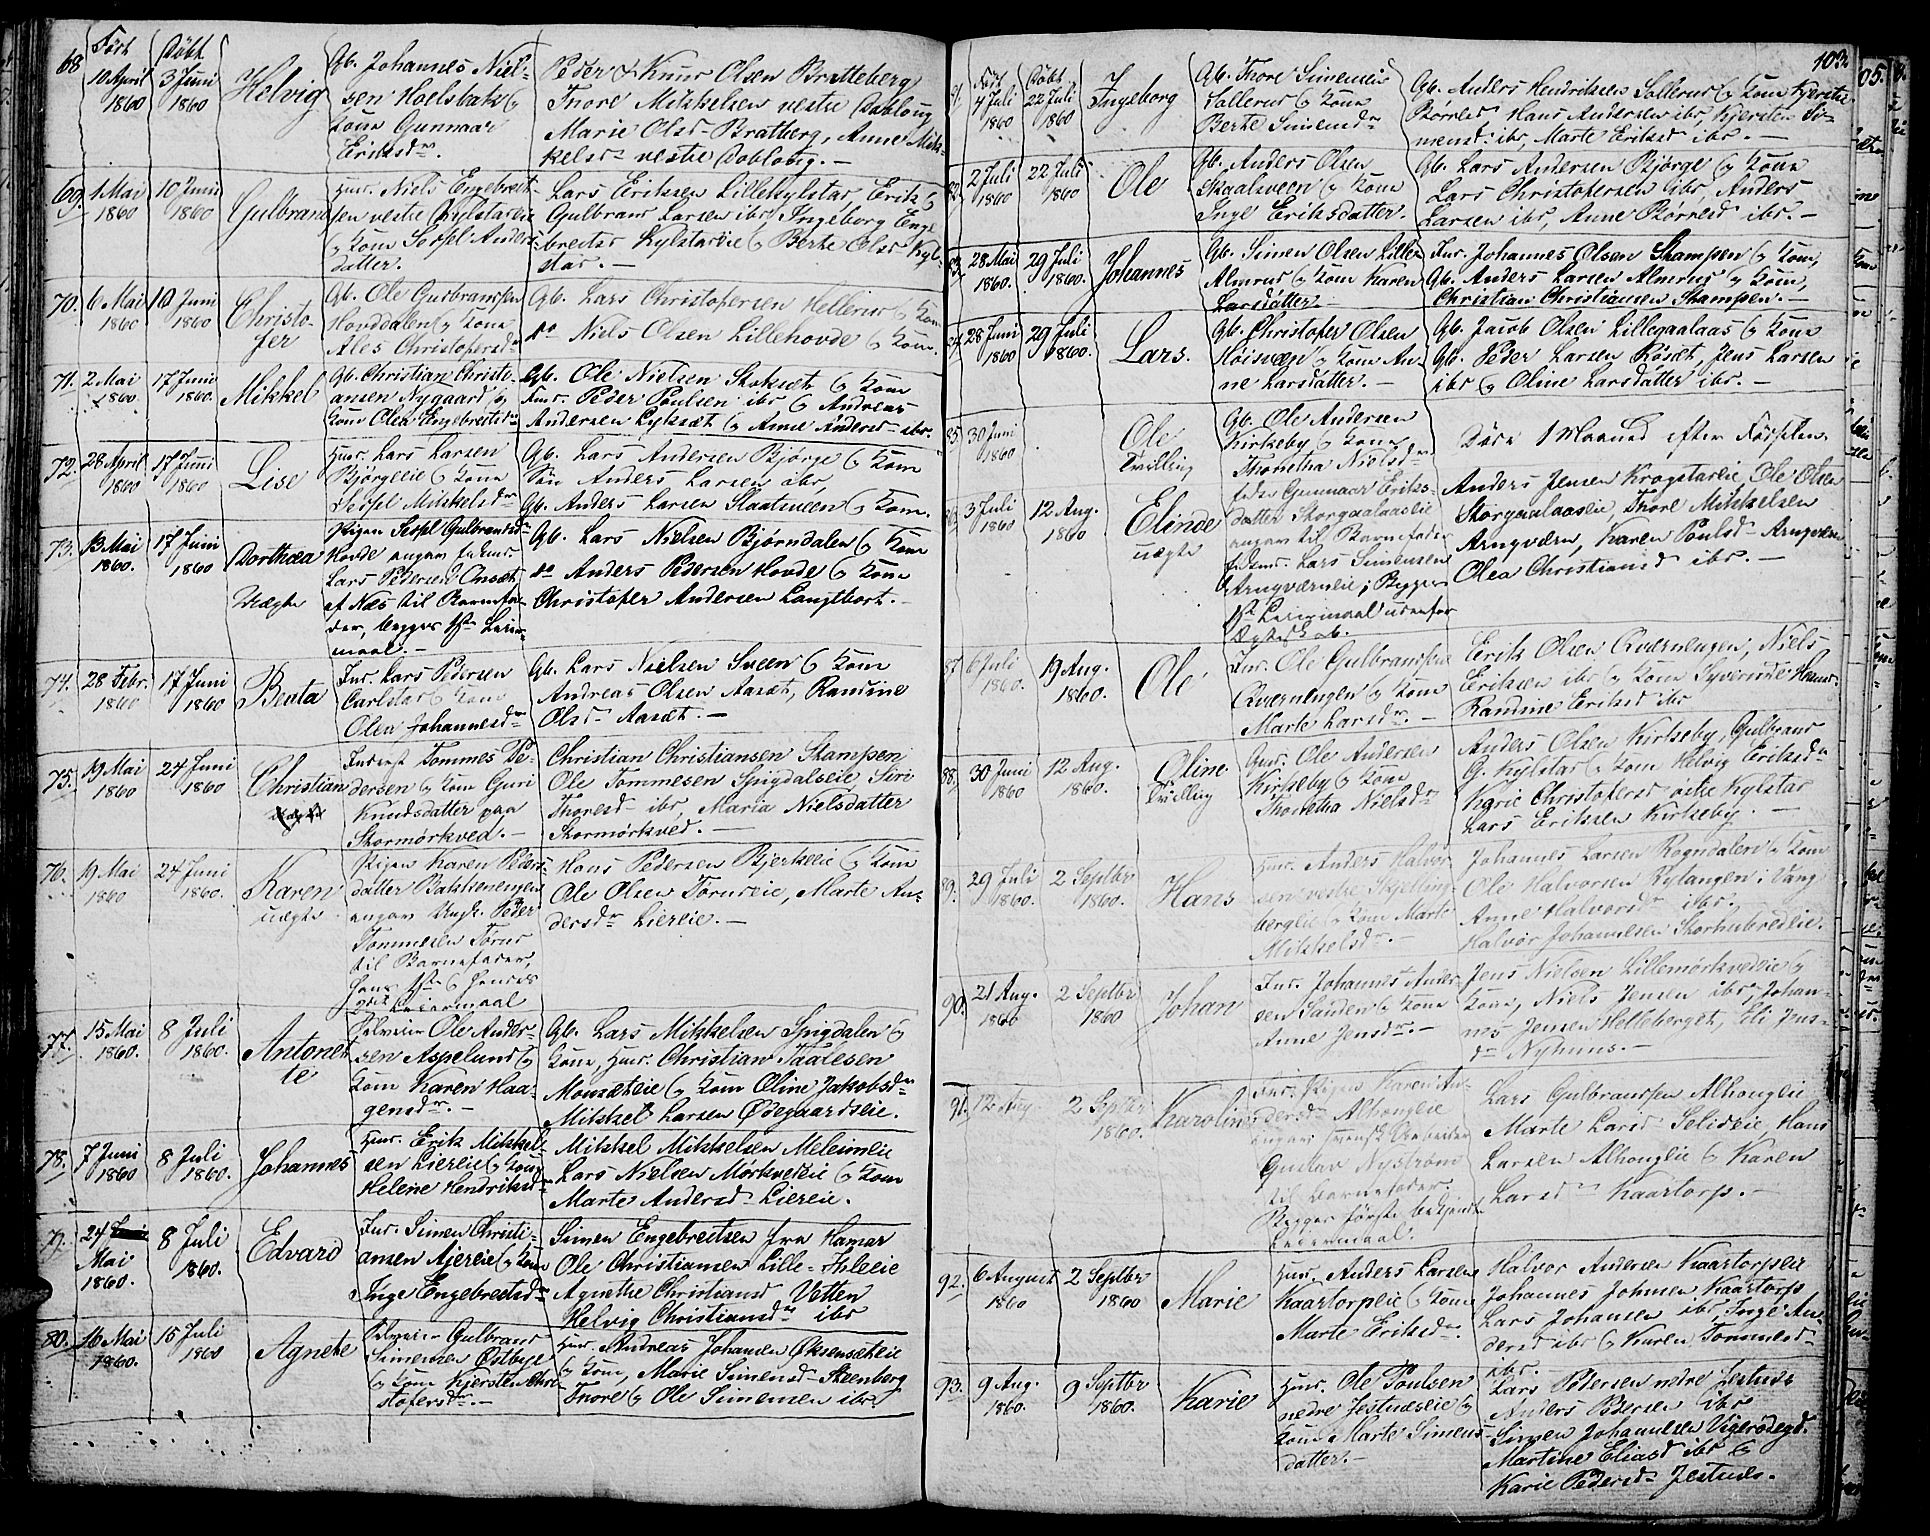 68
Født
10 April
1860
Døbt
3 Juni
1860
Helvig
Gb. Johannes Niel-
sen Hoelsbak og
Kone Gunnaar
Eriksdr.
Peder & Knud Olsen Bratteberg
Thore Mikkelsen vestre Dobloug
Marie Olsd. Bratberg, Anne Mik-
kelsd. vestre Dobloug. —
69.
1 Mai
1860
10 Juni
1860
Gulbrand
Huus. Niels Engebret-
sen vestre Kylstareie
og Kone Sessel Anders-
datter.
Lars Eriksen Lillekylstar, Erik &
Gulbrand Larsen ibr, Ingeborg Enge-
bretsd Kylstareie og Berte Olsd Kyl-
star. —
70.
6 Mai
1860
10 Juni
1860
Christo-
fer
Gb. Ole Gulbrandsen
Hovdalen og Kone
Ales Christofersdr
Gb. Lars Christofersen Hellerud og Kone
do Niels Olsen Lillehovde og Kone.
71.
2 Mai
1860.
17 Juni
1860.
Mikkel
Gb. Christian Christi-
ansen Nygaard og
Kone Olea Engebretsdr
Gb. Ole Nielsen Skaksæt og Kone
Inds. Peder Poulsen ibr & Andreas
Andersen Lyksæt og Anne Andersd. ibr.
72.
28 April
1860
17 Juni
1860
Lise
Huus. Lars Larsen
Bjørgeeie og Kone
Sessel Mikkelsdr
Gb. Lars Andersen Bjørge og Kone
Søn Anders Larsen ibr,
Gb. Anders Larsen Slaatsveen og Kone.
73.
13 Mai
1860.
17 Juni
1860
Dorthea
Uægte
Pigen Sessel Gulbrandsdr
Hovde angav
Lars Pedersen
af Næs til Barnefa-
der, begges 1ste Leier-
maal. —
Gb. Lars Nielsen Bjørndalen og Kone
do Anders Pedersen Hovde og Kone
Christofer Andersen Langtbort. —
74.
28 Febr.
1860
17 Juni
1860
Beata
Inds. Lars Pedersen
Carlstad og Kone
Olea Johannesdr
Gb. Lars Nielsen Sveen & Kone
Andreas Olsen Aasæt, Randine
Olsd. Aasæt. —
75.
19 Mai
1860
24 Juni
1860
Christian
Inderst Tommes Pe-
dersen og Kone Guri
Knudsdatter paa
Skormørkved. —
Christian Christiansen Stampen
Ole Tommesen Spigdalseie, Siri
Thoresd. ibr, Maria Nielsdatter
Skormørkved. —
76.
19 Mai
1860
24 Juni
1860
Karen
uægte
Pigen Karen Peders-
datter Bakkenengen
angav Ungk. Peder
Tommesen Tørud
til Barnefader,
hans 1ste & hendes
Leiermaal
Hans Pedersen Bjerkeeie og Kone
Ole Olsen Tørudeie, Marte An-
dersdr Liereie. —
77.
15 Mai
1860.
8 Juli
1860.
Antonet-
te
Selveier Ole Ander-
sen Aspelund og
Kone Karen Haa-
gensdr. —
Gb. Lars Mikkelsen Spigdalen og
Kone, Huus. Christian Taalesen
Monsæteie og Kone Oline Jakobsdr
Mikkel Larsen Ødegaardseie.
78.
7 Juni
1860
8 Juli
1860.
Johannes
Huus. Erik Mikkel-
sen Liereie og Kone
Helene Hendriksdr
Mikkel Mikkelsen Meleimeie
Lars Nielsen Mørkvedeie og Kone
Marte Andersd. Liereie.
79.
24
Mai
1860.
8 Juli
1860.
Edvard
Inds. Simen Christi-
ansen Ajereie og Kone
Inge Engebretsdr
Simen Engebretsen fra Hamar
Ole Christiansen Lille-Ihleeie
Agnethe Christiansd Vetten
Helvig Christiansdr ibr
80.
16 Mai
1860.
15 Juli
1860
Agnete
Selveier Gulbrand
Simensen Østbye
og Kone Kjersten Chri-
stofersdr. —
Huus. Andreas Johansen Øksensæteie
og Kone, Marie Simensd. Steenberg
Thore og Ole Simensen ibr
103.
81.
Født
4 Juli
1860
Døbt
22 Juli
1860
Ingeborg
Gb. Thore Simensen
Sollerud og Kone
Berte Simensdr
Gb. Anders Hendriksen Sollerud og Kone Kjerstie
Børresd, Hans Andersen ibr, Kjersten Si-
mensd. ibr, Marte Eriksd ibr. —
82.
2 Juli
1860
22 Juli
1860
Ole
Gb. Anders Olsen
Skaalsveen og Kone
Inge Eriksdatter.
Gb. Lars Andersen Bjørge og Kone
Lars Christofersen ibr, Anders
Larsen ibr, Anne Børresd ibr. —
83.
28 Mai
1860.
29 Juli
1860.
Johannes
Gb. Simen Olsen Lille-
Almrud og Kone Karen
Larsdatter —
Inds. Johannes Olsen Stampen og Kone,
Gb. Anders Larsen Almrud og Kone,
Christian Christiansen Stampen. —
84.
28 Juni
1860
29 Juli
1860.
Lars.
Gb. Christofer Olsen
Høisveen og Kone An-
ne Larsdatter. —
Gb. Jacob Olsen Lillegaalaas og Kone
Gb. Peder Larsen Røsæt, Jens Larsen
ibr og Oline Larsdatter ibr. —
85.
30 Juni
1860
Ole
Tvilling
Gb. Ole Andersen
Kirkeby og Kone
Thonetha Nielsdr
Døde 1 Maaned efter Fødselen.
86.
3 Juli
1860
12 Aug.
1860
Elinde
uægte
Gunnaar Eriks-
datter Storgaalaaseie
angav til Barnefader
Lars Simensen
Arngværneie; Begges
1ste Leiermaal udenfor
Ægtesk.ab.
Anders Jensen Krogstareie, Ole Olsen
Storgaalaaseie, Thore Mikkelsen
Arngværn, Karen Poulsd. Arngværn
Olea Christiansd ibr. —
87.
6 Juli
1860.
19 Aug.
1860.
Ole
Inds. Ole Gulbrandsen
Qværnengen og Kone
Marte Larsdr. —
Erik Olsen Qværnengen, Niels
Eriksen ibr og Kone Syverine Hansd.
Randine Eriksd ibr
88.
30 Juni
1860
12 Aug.
1860.
Oline
Tvilling
Ole Andersen
Kirkeby og Kone
Thonetha Nielsdr
Anders Olsen Kirkeby, Gulbrand
G. Kylstar og Kone Helvig Eriksdr
Karie Christofersd østre Kylstar
Lars Eriksen Kirkeby. —
89.
29 Juli
1860.
2 Septbr
1860.
Hans
Huus. Anders Halvor-
sen vestre Skjelling-
bergeie og Kone Marte
Mikkelsdr. —
Johannes Larsen Rogndalen og Kone
Ole Halvorsen Rylangen i Vang
Anne Halvorsdr ibr.
Halvor Johannesen Skorhubredeie.
90.
21 Aug.
1860
2 Septbr
1860
Johan
Inds. Johannes Ander-
sen Sanden og Kone
Anne Jensdr. —
Jens Nielsen Lillemørkvedeie og
Kone, Niels Jensen ibr, Johan-
nes Jensen Helleberget, Eli Jens-
dr Nyhuus. —
91.
12 Aug
2 Septbr
1860.
Karoline
Pigen Karen An-
dersdr Alhougeie
angav svensk Arbeider
Gustav Nystrøm
til Barnefader.
Begges første bekjendte
Leiermaal.
Lars Gulbrandsen Alhougeie
Marte Larsd Selideie, Hans
Larsen Alhougeie og Karen
Larsd Kaartorp. —
92.
6 August
1860
2 Septbr
1860
Marie
Huus. Anders Larsen
Kaartorpeie og Kone
Marte Eriksdr.
Halvor Andersen Kaartorpeie
Johannes Johnsen Kaartorp
Lars Johansen ibr, Inge An-
dersd ibr og Karen Tommesd
ibr.
93.
9 Aug.
1860.
9 Septbr
1860.
Karie
Huus. Ole Poulsen
nedre Jestnæseie og
Kone Marte Simens-
datter. —
Lars Pedersen nedre Jestnæs
Anders Pedersen ibr
Simen Johannesen Vigerødegd.
Martine Eliasd ibr &
Karie Pedersd Jestnæs.